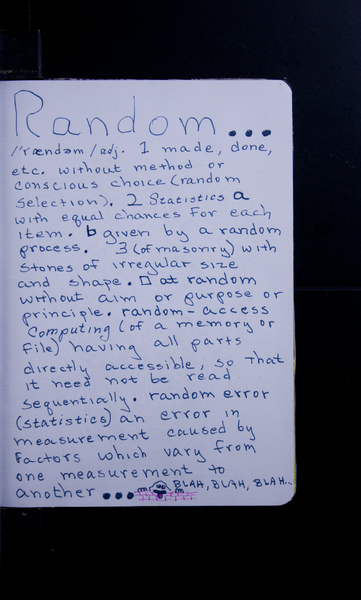 Random...
/'rændəm/adj. 1 made, done,
etc. without method or
conscious choice (random
selection). 2 Statistics a
with equal chances for each
item. b given by a random
process. 3 (of masonry) with
stones of irregular size
and shape. □ at random
without aim or purpose or
principle. random-access
Computing (of a memory or
file) having all parts
directly accessible, so that
it need not be read
sequentially. random error
(statistics) an error in
measurement caused by
factors which vary from
one measurement to
another... BLAH, BLAH, BLAH...